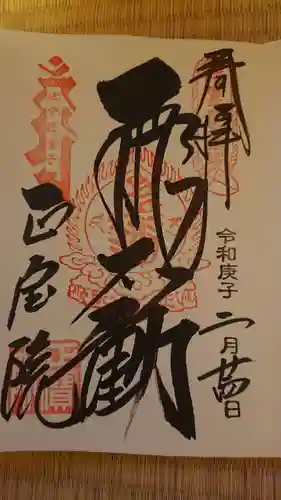 奉拝
令和庚子 二月廿四日
飛不動
正宝院